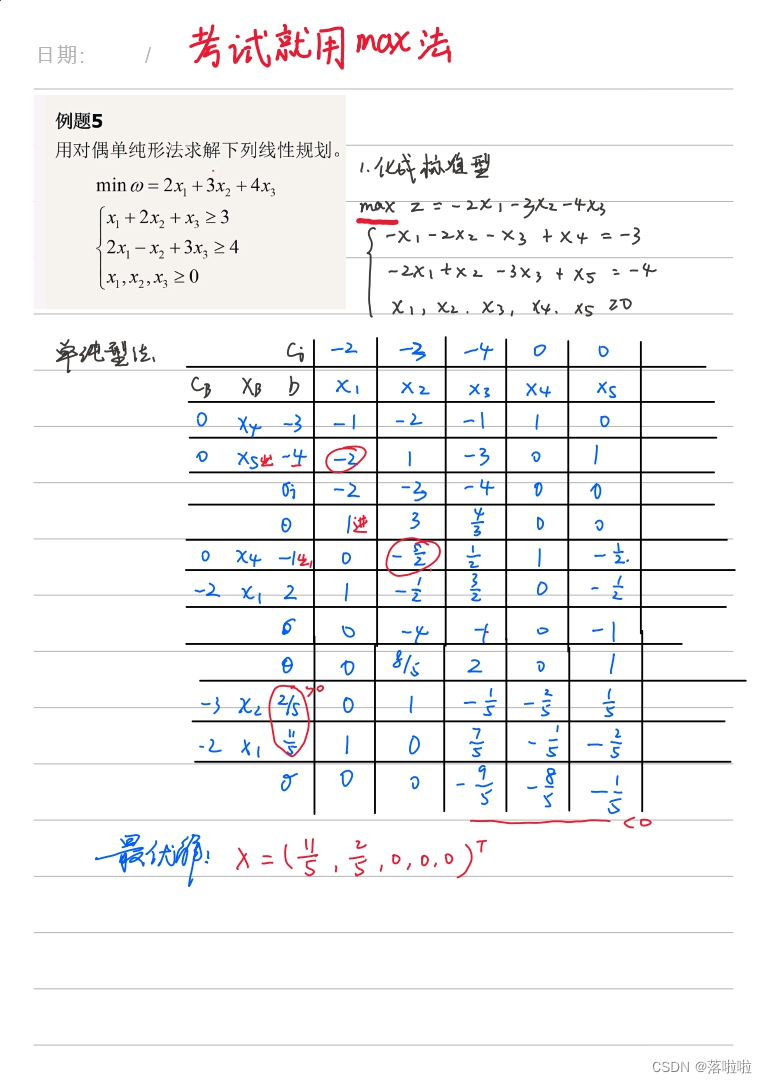 日期: / 考试就用max法
例题5
用对偶单纯形法求解下列线性规划。
min ω = 2x₁ + 3x₂ + 4x₃
x₁ + 2x₂ + x₃ ≥ 3
2x₁ − x₂ + 3x₃ ≥ 4
x₁, x₂, x₃ ≥ 0
1.化成标准型
max z = −2x₁ −3x₂ −4x₃
−x₁ −2x₂ − x₃ + x₄ = −3
−2x₁ + x₂ −3x₃ + x₅ = −4
x₁, x₂. x₃, x₄. x₅ ≥0
单纯型法
Cj −2 −3 −4 0 0
CB XB b x₁ x₂ x₃ x₄ x₅
0 x₄ −3 −1 −2 −1 1 0
0 x₅出 −4 −2 1 −3 0 1
σj −2 −3 −4 0 0
θ 1进 3 4/3 0 0
0 x₄ −1出 0 −5/2 1/2 1 −1/2.
−2 x₁ 2 1 −1/2 3/2 0 −1/2
σ 0 −4 −1 0 −1
θ 0 8/5 2 0 1
−3 x₂ 2/5 >0 0 1 −1/5 −2/5 1/5
−2 x₁ 11/5 1 0 7/5 −1/5 −2/5
σ 0 0 −9/5 −8/5 −1/5
<0
最优解: X = (11/5, 2/5, 0, 0, 0)ᵀ
CSDN @落啦啦